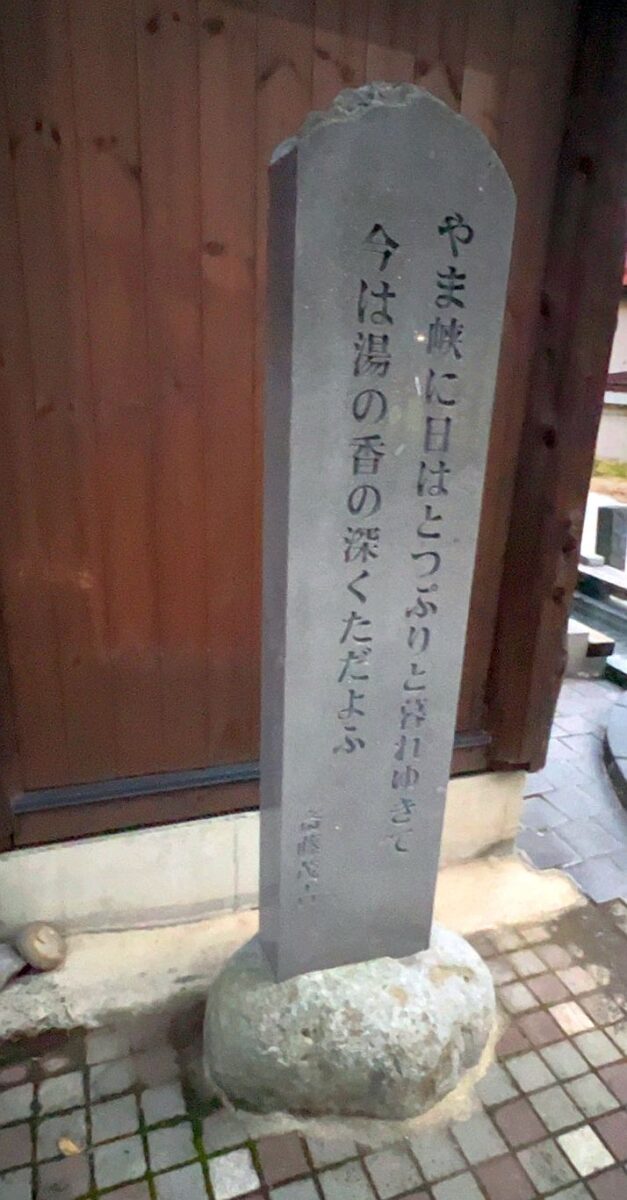 やま峡に日はとつぷりと暮れゆきて
今は湯の香の深くただよふ
斎藤茂吉